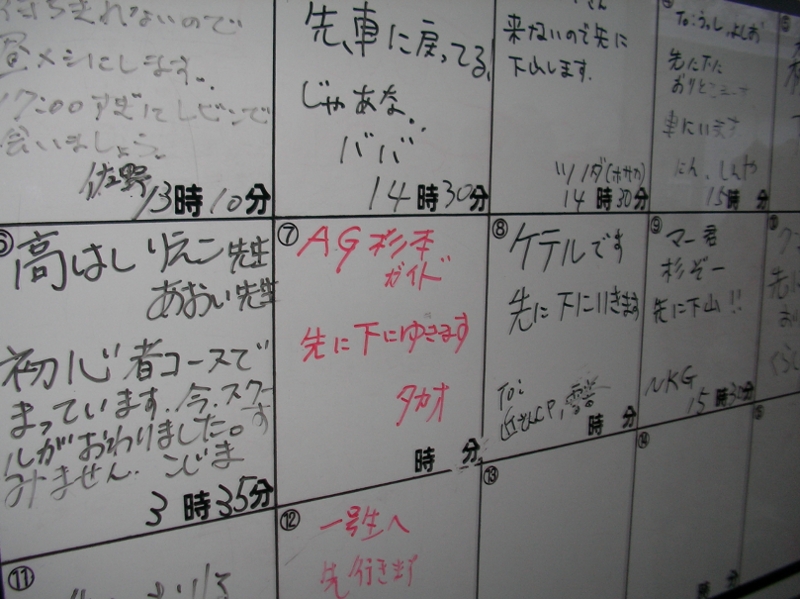 待ちきれないので
昼メシにします。
17:00アサマにレビンで
会いましょう。
佐野
13時10分
先、車に戻ってる!
じゃあな。
ババ
14時30分
来ないので先に
下山します。
ツノダ(ホサカ)
14時30分
To:うっしょしお
先に下に
おりとこーす
車にいます
にん、しんや
15時 分
⑥
高はしりえこ先生
あおい先生
初心者コースで
まっています。今、スクー
ルがおわりました。す
みません。こじま
3時35分
⑦
AG杉本
ガイド
先に下にゆきます
タカオ
時 分
⑧
ケテルです
先に下にいきます
To:
時 分
⑨
マー君
杉ぞー
先に下山!!
NKG
15時30分
⑪
⑫
一号生へ
先行きます
⑬
⑭
時 分
⑮